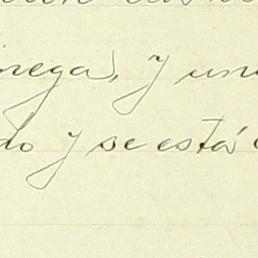 nega, y un
do y se está